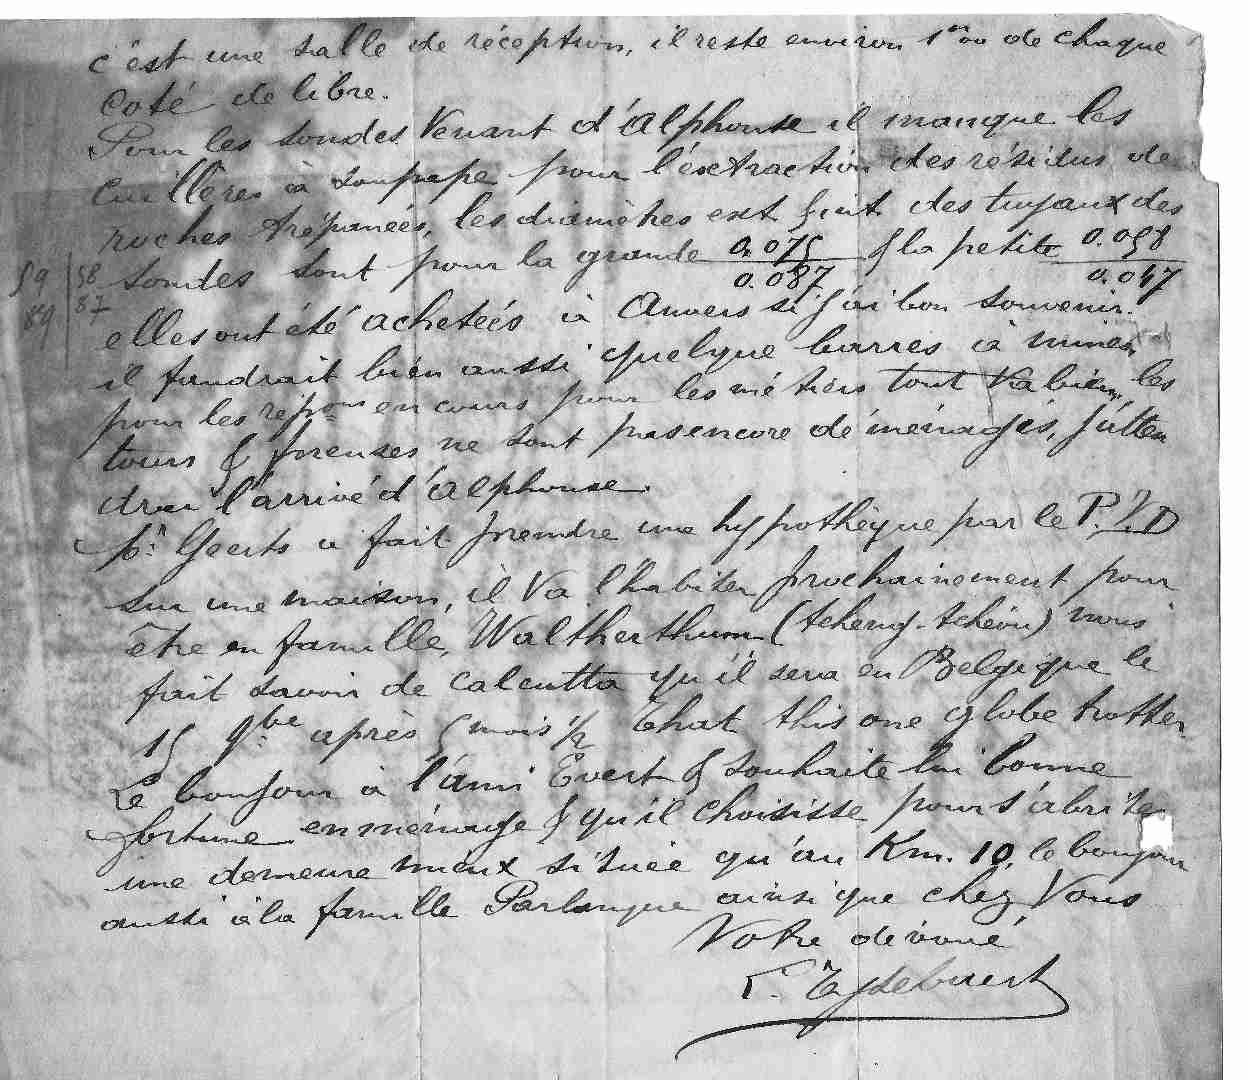 c'est une salle de réception, il reste environ 1m00 de chaque
coté de libre.
Pour les sondes venant d'Alphonse il manque les
cuillères à soupape pour l'extraction des résidus de
roches trépanées, les diamètres ext & int des tuyaux des
sondes sont pour la grande 0.075 / 0.087 & la petite 0.058 / 0.047
59 | 58
89 | 87
elles ont été achetées à Anvers si j'ai bon souvenir.
il faudrait bien aussi quelque barres à mines
pour les répons en cours pour les métiers tout va bien, les
tours & foreuses ne sont pas encore déménagés, j'atten
drai l'arrivé d'Alphonse.
Geerts a fait prendre une hypothèque par le P.V.D
sur une maison, il va l'habiter prochainement pour
être en famille, Waltherthum (tcheng-tchéou) nous
fait savoir de Calcutta qu'il sera en Belgique le
15 9bre après 5 mois ½ that this one globe trotter.
Le bonjour à l'ami Evert & souhaite lui bonne
fortune en ménage & qu'il choisisse pour s'abriter
une demeure mieux située qu'au Km. 10, le bonjour
aussi à la famille ainsi que chez Vous
Votre dévoué